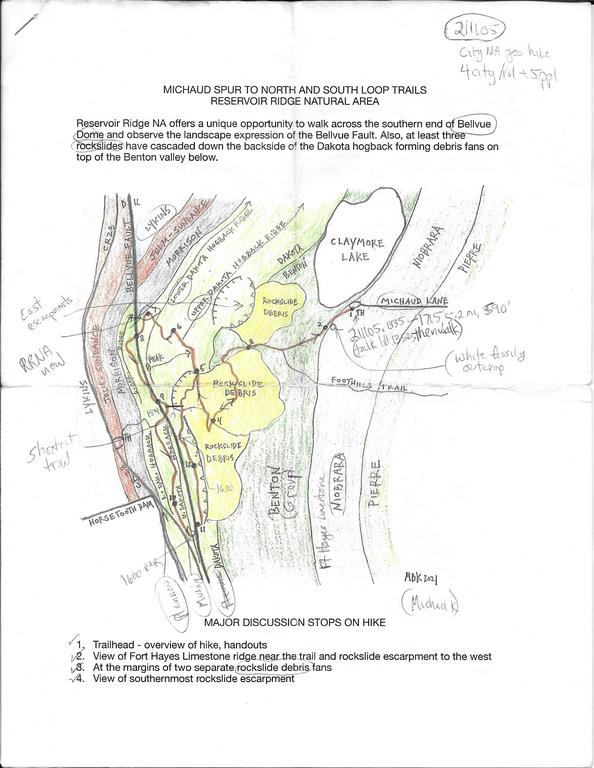 211105
City NA geo hike
4 city/vol + 5 ppl
MICHAUD SPUR TO NORTH AND SOUTH LOOP TRAILS
RESERVOIR RIDGE NATURAL AREA
Reservoir Ridge NA offers a unique opportunity to walk across the southern end of Bellvue
Dome and observe the landscape expression of the Bellvue Fault. Also, at least three
rockslides have cascaded down the backside of the Dakota hogback forming debris fans on
top of the Benton valley below.
D
CR 23
BELLVUE FAULT
LYKINS
JELM-SUNDANCE
MORRISON
LOWER DAKOTA HOGBACK RIDGE
UPPER DAKOTA HOGBACK RIDGE
DAKOTA
BENTON
CLAYMORE
LAKE
NIOBRARA
PIERRE
East
escarpments
ROCKSLIDE
DEBRIS
TH
MICHAUD LANE
211105, 1335-1715 5.2 mi, 590'
talk til 1352, then walk
white fissily
outcrop
RRNA
view
PEAK
FOOTHILLS TRAIL
LYKINS
JELM-SUNDANCE
MORRISON
ROCKSLIDE
DEBRIS
Shortcut
trail
TH
ROCKSLIDE
DEBRIS
1630
HOGBACK
BENTON
(Group)
Ft Hayes Limestone
NIOBRARA
PIERRE
HORSETOOTH DAM
1600
DAKOTA
MDK 2021
(Michael K)
MAJOR DISCUSSION STOPS ON HIKE
1. Trailhead - overview of hike, handouts
2. View of Fort Hayes Limestone ridge near the trail and rockslide escarpment to the west
3. At the margins of two separate rockslide debris fans
4. View of southernmost rockslide escarpment